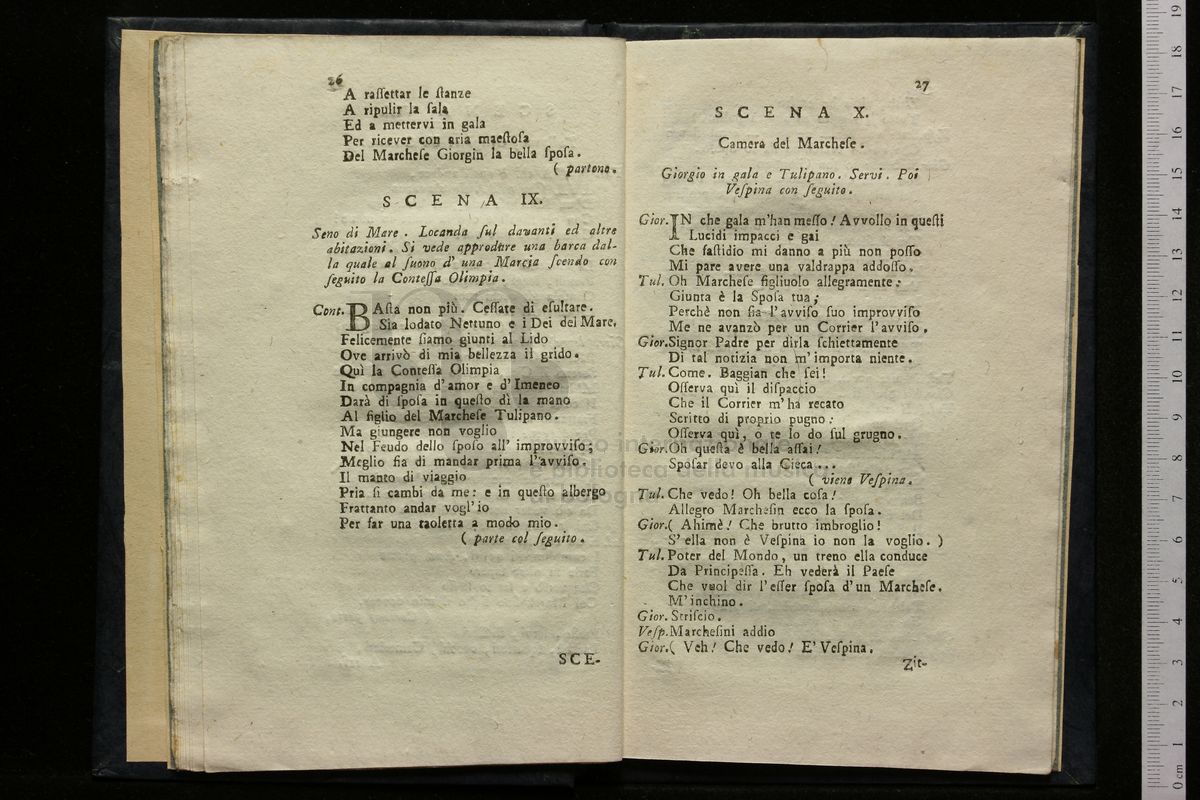 26
A raſſettar le ſtanze
A ripulir la ſala
Ed a mettervi in gala
Per ricever con aria maeſtoſa
Del Marcheſe Giorgin la bella ſpoſa.
( partono.
SCENA IX.
Seno di Mare. Locanda ſul davanti ed altre
abitazioni. Si vede approdare una barca dal-
la quale al ſuono d' una Marcia ſcende con
ſeguito la Conteſſa Olimpia.
Cont. BAſta non più. Ceſſate di eſultare.
Sia lodato Nettuno e i Dei del Mare.
Felicemente ſiamo giunti al Lido
Ove arrivò di mia bellezza il grido.
Quì la Conteſſa Olimpia
In compagnia d'amor e d'Imeneo
Darà di ſpoſa in queſto dì la mano
Al figlio del Marcheſe Tulipano.
Ma giungere non voglio
Nel Feudo dello ſpoſo all' improvviſo;
Meglio fia di mandar prima l'avviſo.
Il manto di viaggio
Pria ſi cambi da me: e in queſto albergo
Frattanto andar vogl'io
Per far una taoletta a modo mio.
( parte col ſeguito.
SCE-
27
SCENA X.
Camera del Marcheſe.
Giorgio in gala e Tulipano. Servi. Poi
Veſpina con ſeguito.
Gior. IN che gala m'han meſſo! Avvollo in queſti
Lucidi impacci e gai
Che faſtidio mi danno a più non poſſo
Mi pare avere una valdrappa addoſſo.
Tul. Oh Marcheſe figliuolo allegramente:
Giunta è la Spoſa tua;
Perchè non ſia l'avviſo ſuo improvviſo
Me ne avanzò per un Corrier l'avviſo.
Gior. Signor Padre per dirla ſchiettamente
Di tal notizia non m'importa niente.
Tul. Come. Baggian che ſei!
Oſſerva quì il diſpaccio
Che il Corrier m'ha recato
Scritto di proprio pugno:
Oſſerva quì, o te lo do ſul grugno.
Gior. Oh queſta è bella aſſai!
Spoſar devo alla Cieca...
( viene Veſpina.
Tul. Che vedo! Oh bella coſa!
Allegro Marcheſin ecco la ſpoſa.
Gior. ( Ahimè! Che brutto imbroglio!
S'ella non è Veſpina io non la voglio. )
Tul. Poter del Mondo, un treno ella conduce
Da Principeſſa. Eh vederà il Paeſe
Che vuol dir l'eſſer ſpoſa d'un Marcheſe.
M'inchino.
Gior. Striſcio.
Veſp. Marcheſini addio
Gior. ( Veh! Che vedo! E' Veſpina.
Zit-